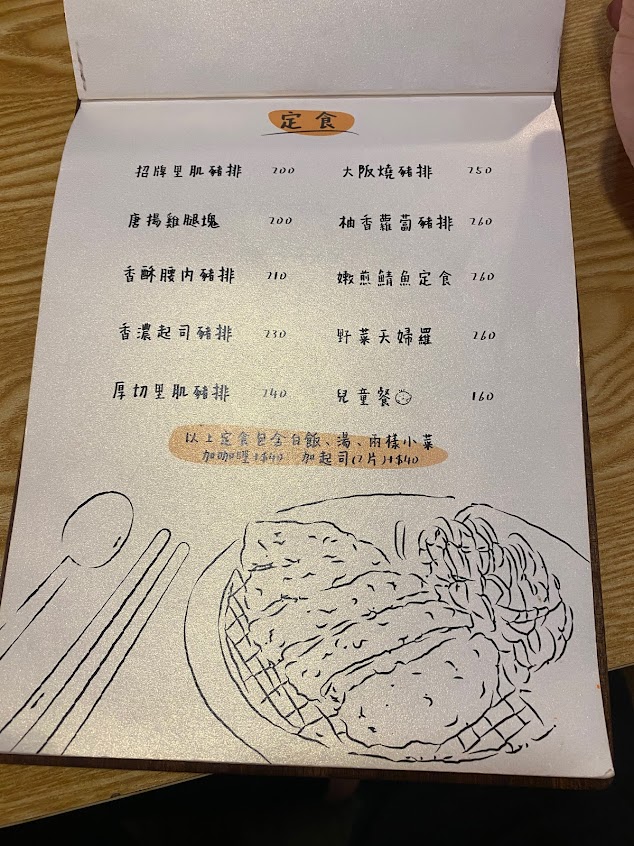 定食
招牌里肌豬排 200
唐揚雞腿塊 200
香酥腰內豬排 210
香濃起司豬排 230
厚切里肌豬排 240
大阪燒豬排 250
柚香蘿蔔豬排 260
嫩煎鯖魚定食 260
野菜天婦羅 260
兒童餐 160
以上定食包含白飯、湯、兩樣小菜
加咖哩+$40 加起司(2片)+$40